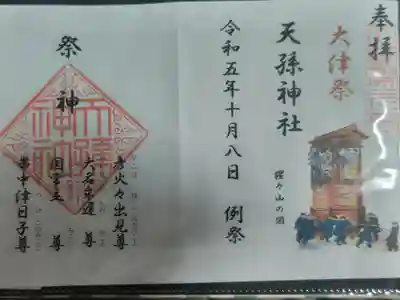 奉拝
大津祭
天孫神社
狸々山の図
令和五年十月八日 例祭
祭神
彦火々出見尊
大名牟遅尊
国常立尊
帯中津日子尊